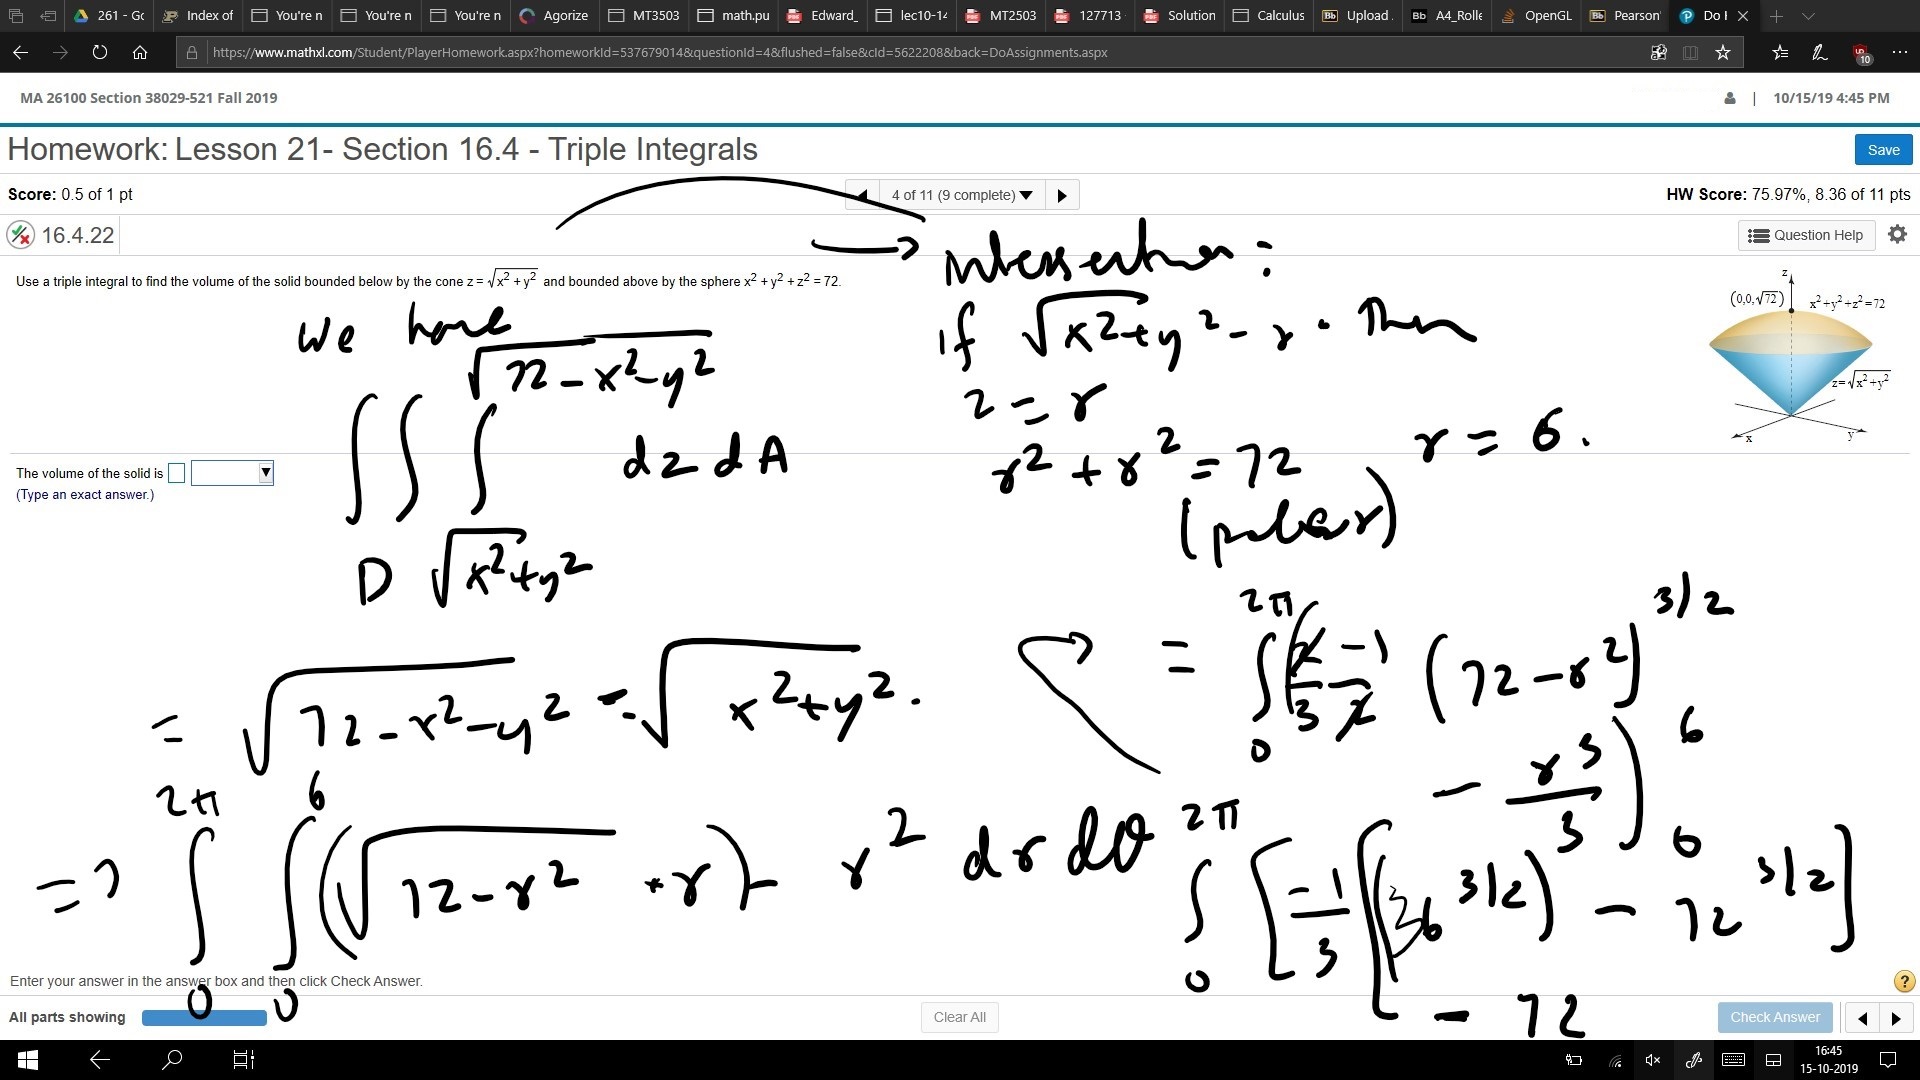 261 - Gc
Index of
You're n
You're n
You're n
Agorize
MT3503
math.pu
Edward_
lec10-14
MT2503
127713
Solution
Calculus
Upload .
A4_Rolle
OpenGL
Pearson'
Do I
https://www.mathxl.com/Student/PlayerHomework.aspx?homeworkId=537679014&questionId=4&flushed=false&cId=5622208&back=DoAssignments.aspx
10
MA 26100 Section 38029-521 Fall 2019
| 10/15/19 4:45 PM
Homework: Lesson 21- Section 16.4 - Triple Integrals
Save
Score: 0.5 of 1 pt
4 of 11 (9 complete)
HW Score: 75.97%, 8.36 of 11 pts
16.4.22
Question Help
Use a triple integral to find the volume of the solid bounded below by the cone z = √(x² + y²) and bounded above by the sphere x² + y² + z² = 72.
z
(0,0,√72)
x²+y²+z²=72
z=√(x²+y²)
x
y
The volume of the solid is
(Type an exact answer.)
We have
√(72 - x² - y²)
∫∫∫ dz dA
D √(x²+y²)
= √(72 - x² - y²) - √(x²+y²).
=> ∫₀^2π ∫₀^6 (√(72 - r²) · r) - r² dr dθ
intersection:
if √(x²+y²) = r. Then
z = r
r² + r² = 72
r = 6.
(polar)
= ∫₀^2π (2/3 -1/2 (72 - r²)^3/2
- r³/3)₀^6
∫₀^2π [-1/3 [(36^3/2) - 72^3/2]
- 72
Enter your answer in the answer box and then click Check Answer.
?
All parts showing
Clear All
Check Answer
16:45
15-10-2019